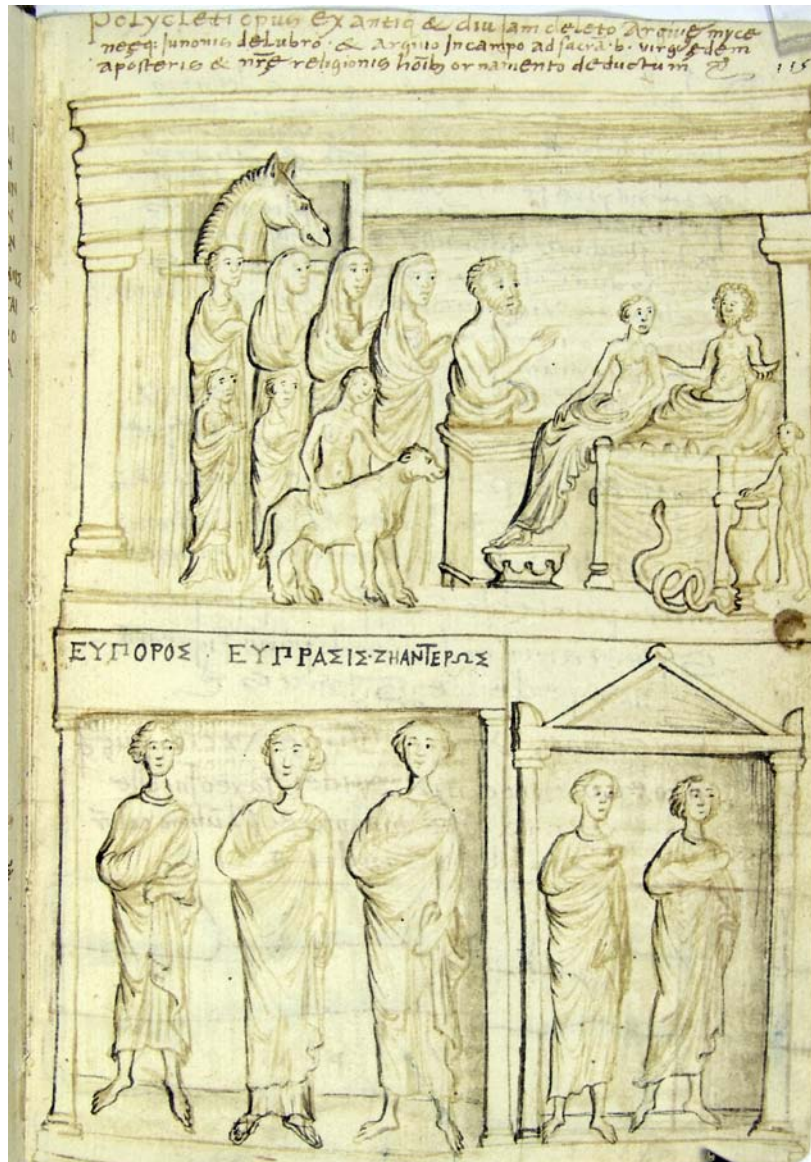 polycleti opus Ex antiq & diu jam deleto Argiuę myce
neęq: junonis deLubro · & Arguio in campo ad sacra · b · virg ędem
aposteris & nrę religionis hoib ornamento deductum
115
ΕΥΠΟΡΟΣ · ΕΥΠΡΑΣΙΣ · ΖΗΑΝΤΕΡΩΣ